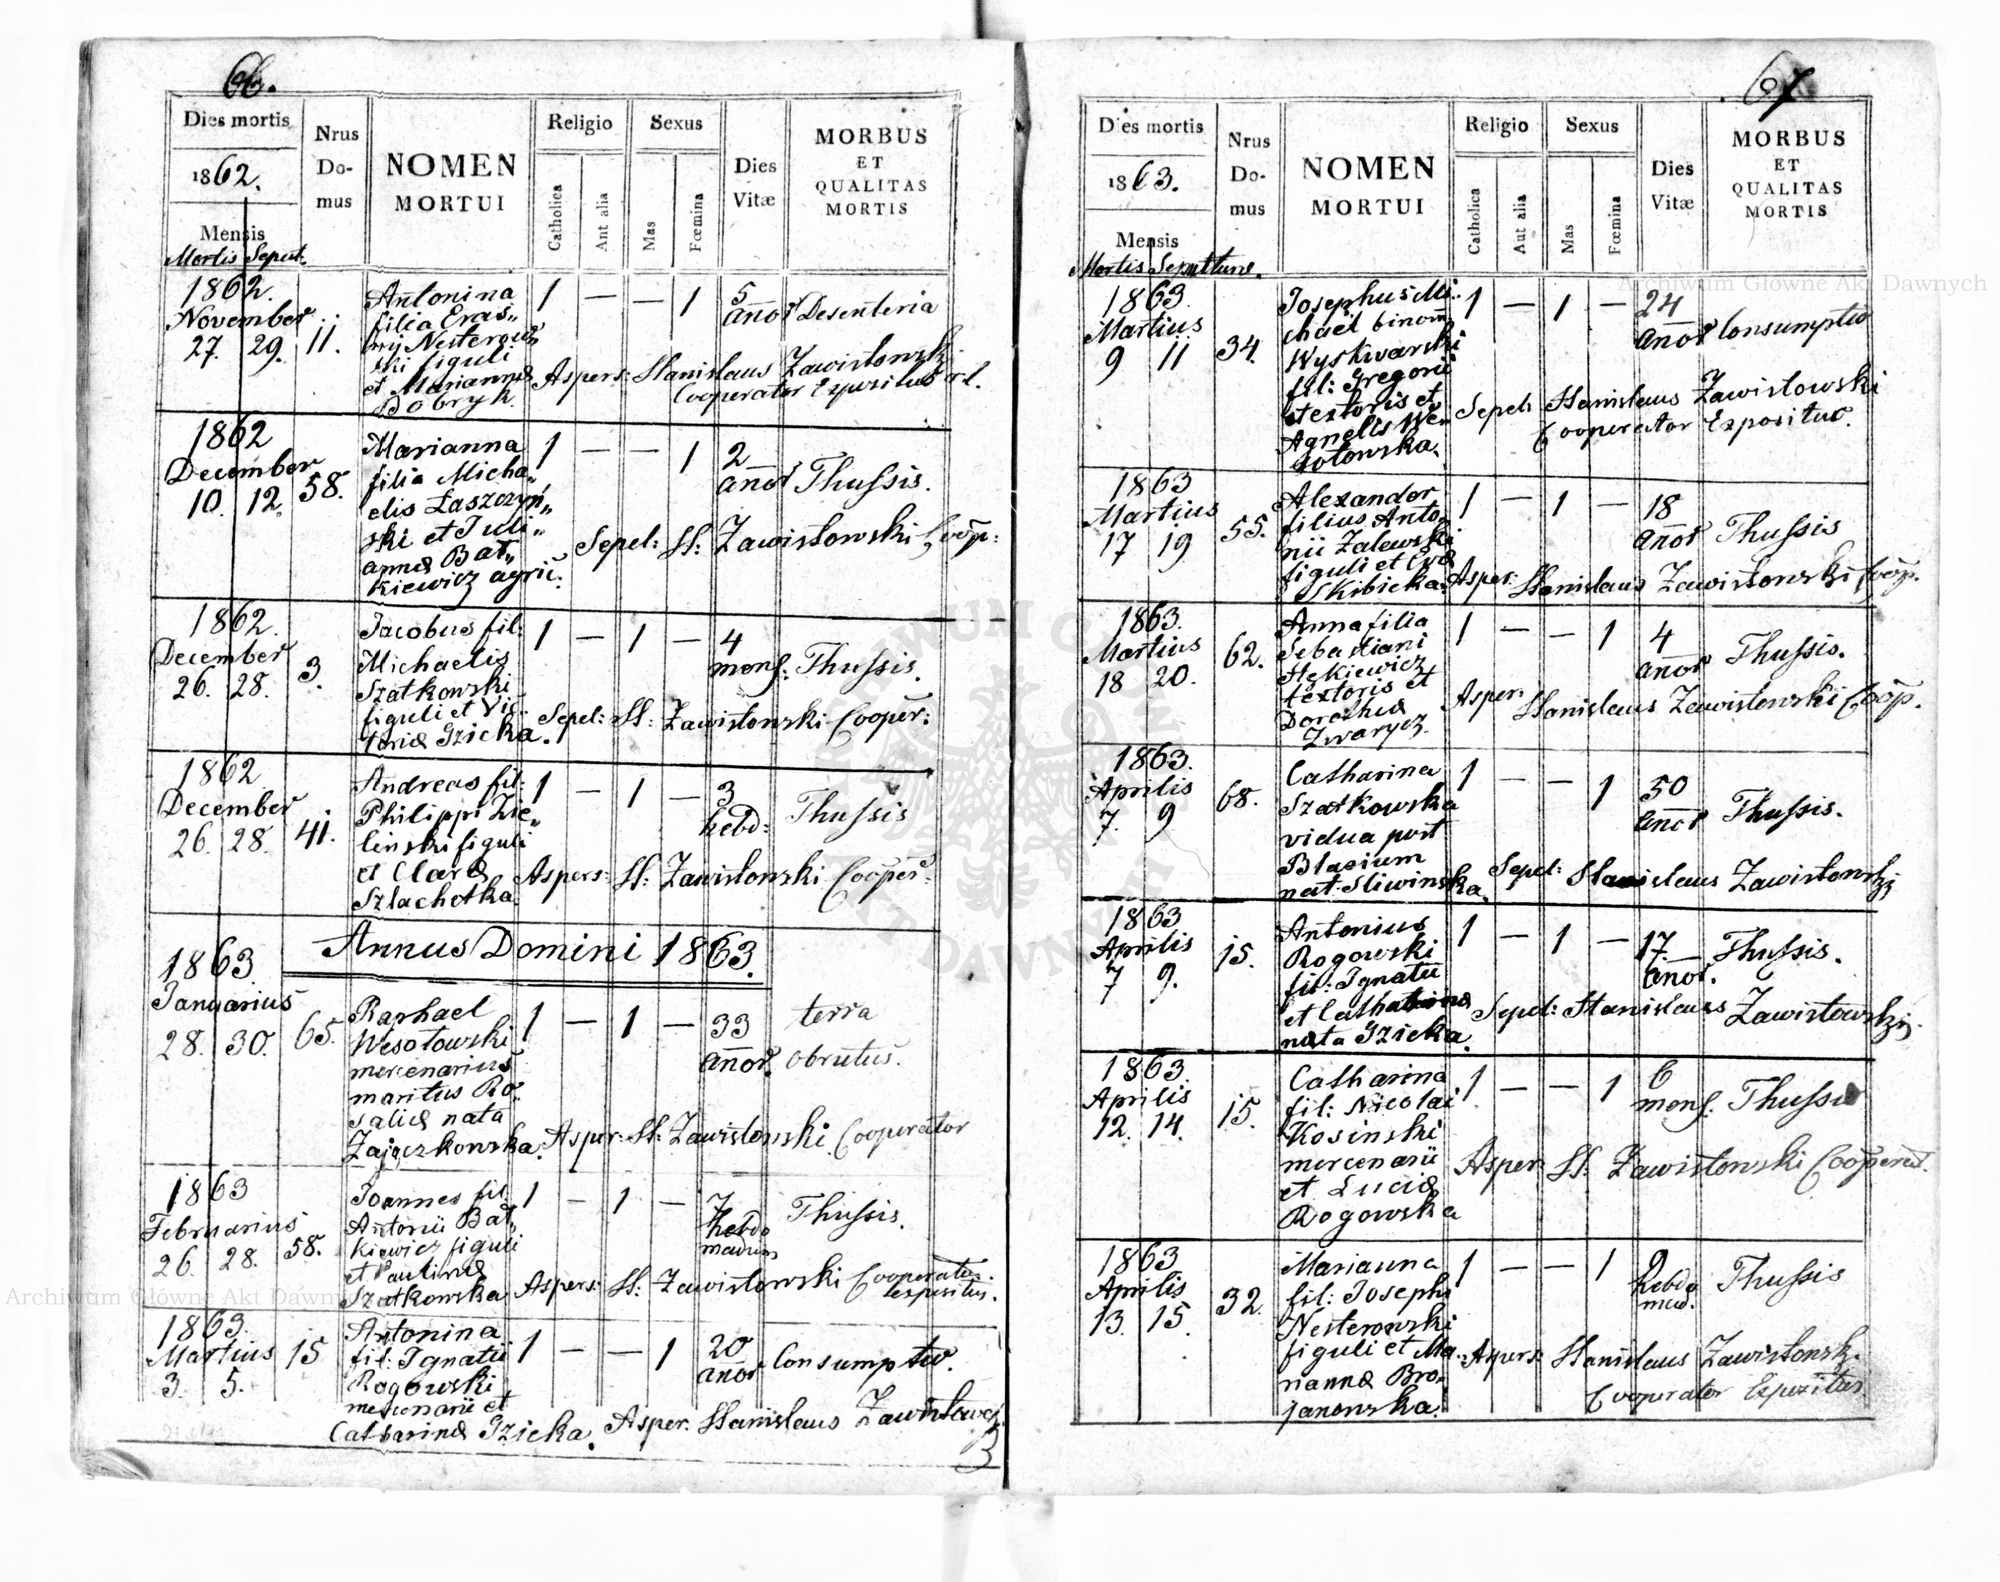 66.
Dies mortis
1862.
Mensis
Mortis Sepult.
Nrus
Do-
mus
NOMEN
MORTUI
Religio
Catholica
Aut alia
Sexus
Mas
Fœmina
Dies
Vitæ
MORBUS
ET
QUALITAS
MORTIS
1862.
November
27. 29. 11.
Antonina
filia Eras„
mij Nesterows
ki figuli
et Mariannæ
Bobryk.
1 — — 1 5
añor Desenteria
Aspers: Stanislaus Zawistowski
Cooperator Expositus
1862
December
10. 12. 58.
Marianna
filia Micha„
elis Łaszczyń„
ski et Juli„
annæ Bat„
kiewicz agric.
1 — — 1 2
añor Thussis.
Sepel: St: Zawistowski Coop:
1862.
December
26. 28. 3.
Jacobus fil:
Michaelis
Szatkowski
figuli et Vic„
toriæ Gzicka.
1 — 1 — 4
mens: Thussis.
Sepel: St: Zawistowski Cooper:
1862
December
26. 28. 41.
Andreas fil:
Philippi Zie„
linski figuli
et Claræ
Szlachetka.
1 — 1 — 3
hebd: Thussis
Aspers: St: Zawistowski Cooper:
Annus Domini 1863.
1863
Januarius
28. 30. 65.
Raphael
Wesołowski
mercenarius
maritus Ro„
saliæ nata
Zajączkowska.
1 — 1 — 33
añor. terra
obrutus.
Asper: St: Zawistowski Cooperator
1863
Februarius
26. 28. 58.
Joannes fil:
Antonii Bat„
kiewicz figuli
et Paulinæ
Szatkowska
1 — 1 — 7
hebdo
madum Thussis.
Aspers: St: Zawistowski Cooperator
Expositus.
1863.
Martius
3. 5. 15
Antonina
fil: Ignatii
Rogowski
mercenarii et
Catharinæ Gzicka.
1 — — 1 20
añor Consumptio.
Asper: Stanislaus Zawistowski
67
Dies mortis
1863.
Mensis
Mortis Sepulturæ.
Nrus
Do-
mus
NOMEN
MORTUI
Religio
Catholica
Aut alia
Sexus
Mas
Fœmina
Dies
Vitæ
MORBUS
ET
QUALITAS
MORTIS
1863
Martius
9 11 34.
Josephus Mi„
chael binom
Wyskwarski
fil: Gregorii
textoris et
Agnetis We„
sołowska.
1 — 1 — 24
añor Consumptio
Sepel: Stanislaus Zawistowski
Cooperator Expositus.
1863
Martius
17 19 55.
Alexander
filius Anto„
nii Zalewski
figuli et Evæ
Skibicka.
1 — 1 — 18
añor Thussis
Asper: Stanislaus Zawistowski Coop.
1863.
Martius
18 20. 62.
Anna filia
Sebastiani
Stękiewicz
textoris et
Dorotheæ
Zwarycz.
1 — — 1 4
añor Thussis.
Asper: Stanislaus Zawistowski Coop.
1863.
Aprilis
7. 9 68.
Catharina
Szatkowska
vidua post
Blasium
nat: Sliwinska.
1 — — 1 50
añor Thussis.
Sepel: Stanislaus Zawistowski
1863
Aprilis
7 9. 15.
Antonius
Rogowski
fil: Ignatii
et Catharinæ
nata Gzicka.
1 — 1 — 17.
añor. Thussis.
Sepel: Stanislaus Zawistowski
1863
Aprilis
12. 14. 15.
Catharina
fil: Nicolai
Kosinski
mercenarii
et Luciæ
Rogowska
1 — — 1 6
mens. Thussis
Asper: St: Zawistowski Cooperat.
1863
Aprilis
13. 15. 32
Marianna
fil: Josephi
Nesterowski
figuli et Ma„
riannæ Bro„
janowska.
1 — — 1 9
hebdo
mad. Thussis
Aspers: Stanislaus Zawistowsk.
Cooperator Expositus.
Archiwum Główne Akt Dawnych
Archiwum Główne Akt Dawnych
ARCHIWUM GŁÓWNE AKT DAWNYCH